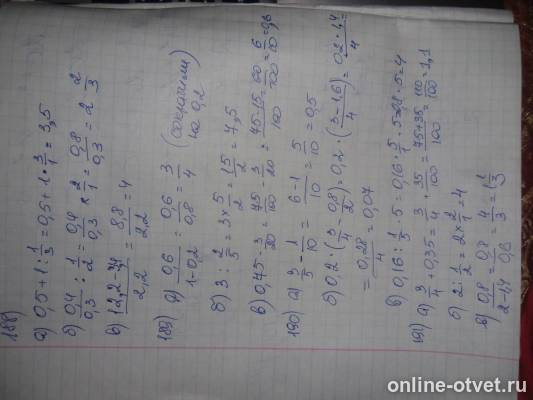 188)
а) 0,5+1:1/3=0,5+1·3/1=3,5
б) 0,4/0,3:1/2=0,4/0,3×2/1=0,8/0,3=2 2/3
в) 12,2-3,4/2,2=8,8/2,2=4
189) а) 0,6/1-0,2=0,6/0,8=3/4 (сократили на 0,2)
б) 3:2/5=3×5/2=15/2=7,5
в) 0,75-3/20=75/100-3/20=75-15/100=60/100=6/10=0,6
190) а) 3/5-1/10=6-1/10=5/10=0,5
б) 0,2·(3/4-0,8/2)=0,2·(3-1,6/4)=0,2·1,4/4=
=0,28/4=0,07
в) 0,16:1/5·5=0,16·5/1·5=0,8·5=4
191) а) 3/4+0,35=3/4+35/100=75+35/100=110/100=1,1
б) 2:1/2=2×2/1=4
в) 0,8/2-1,4=0,8/0,6=4/3=1 1/3
online-otvet.ru